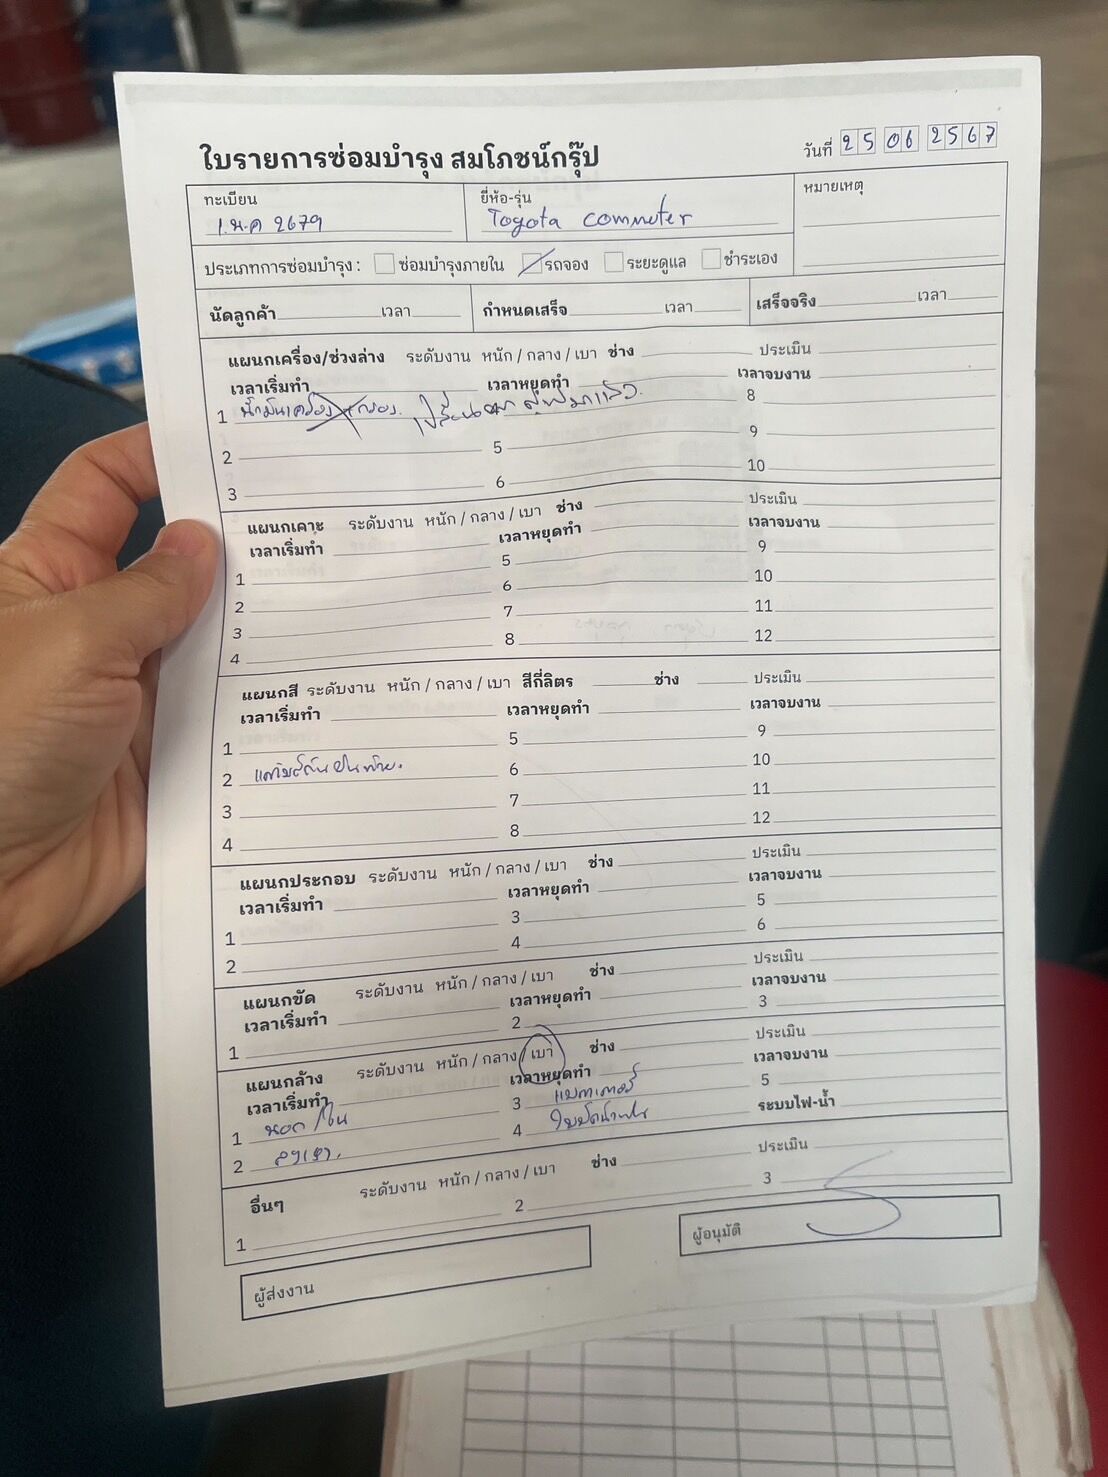 ใบรายการซ่อมบำรุง สมโภชน์กรุ๊ป
วันที่ 25 06 2567
ทะเบียน ยี่ห้อ-รุ่น หมายเหตุ
2679 Toyota commuter
ประเภทการซ่อมบำรุง : ซ่อมบำรุงภายใน รถจอง ระยะดูแล ชำระเอง
นัดลูกค้า เวลา กำหนดเสร็จ เวลา เสร็จจริง เวลา
แผนกเครื่อง/ช่วงล่าง ระดับงาน หนัก / กลาง / เบา ช่าง ประเมิน
เวลาเริ่มทำ เวลาหยุดทำ เวลาจบงาน
1 น้ำมันเครื่อง กรอง. 8
2 5 9
3 6 10
แผนกเคาะ ระดับงาน หนัก / กลาง / เบา ช่าง ประเมิน
เวลาเริ่มทำ เวลาหยุดทำ เวลาจบงาน
1 5 9
2 6 10
3 7 11
4 8 12
แผนกสี ระดับงาน หนัก / กลาง / เบา สีกี่ลิตร ช่าง ประเมิน
เวลาเริ่มทำ เวลาหยุดทำ เวลาจบงาน
1 5 9
2 6 10
3 7 11
4 8 12
แผนกประกอบ ระดับงาน หนัก / กลาง / เบา ช่าง ประเมิน
เวลาเริ่มทำ เวลาหยุดทำ เวลาจบงาน
1 3 5
2 4 6
แผนกขัด ระดับงาน หนัก / กลาง / เบา ช่าง ประเมิน
เวลาเริ่มทำ เวลาหยุดทำ เวลาจบงาน
1 2 3
แผนกล้าง ระดับงาน หนัก / กลาง / เบา ช่าง ประเมิน
เวลาเริ่มทำ เวลาหยุดทำ เวลาจบงาน
1 นอก/ใน 3 แบตเตอรี่ 5
2 4 ใบปัดน้ำฝน ระบบไฟ-น้ำ
อื่นๆ ระดับงาน หนัก / กลาง / เบา ช่าง ประเมิน
1 2 3
ผู้ส่งงาน ผู้อนุมัติ